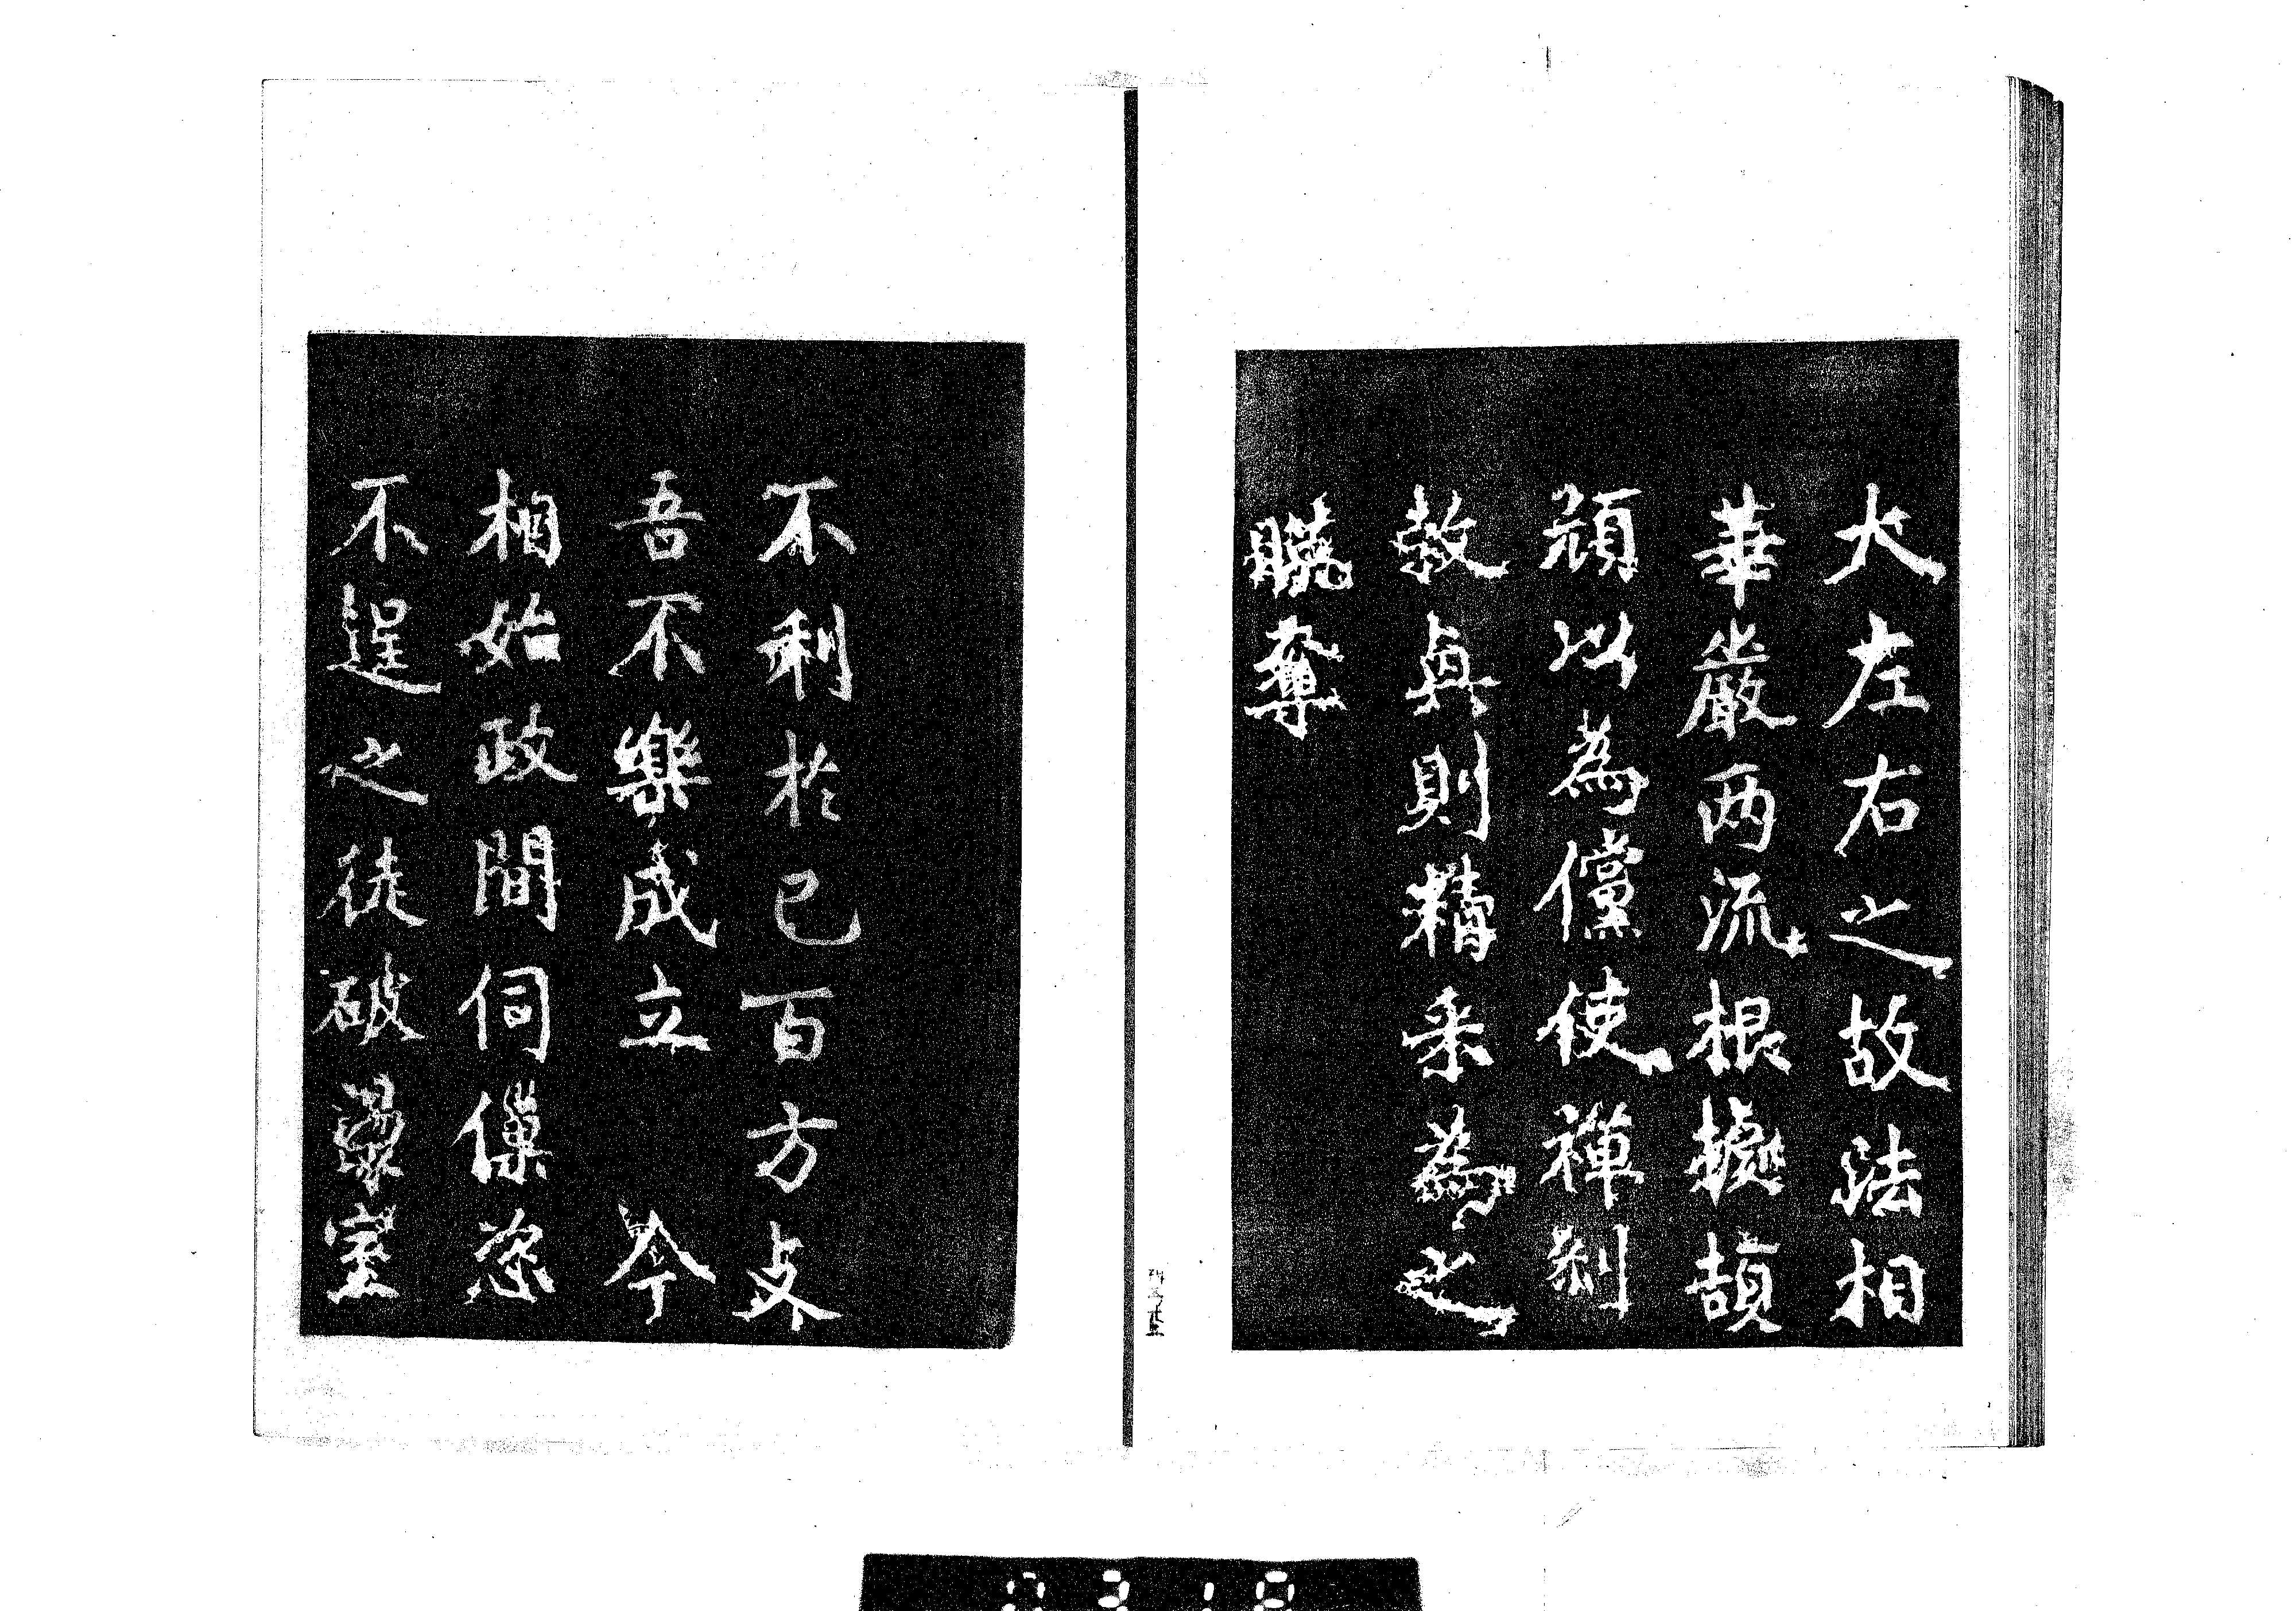 大左右之故法相
華嚴两流根據頡
頏以為儻使禪刹
敎真則精釆為之
奪
不利於已百方支
吾不樂成立 今
相始政間伺恣
不逞之徒破室
0318